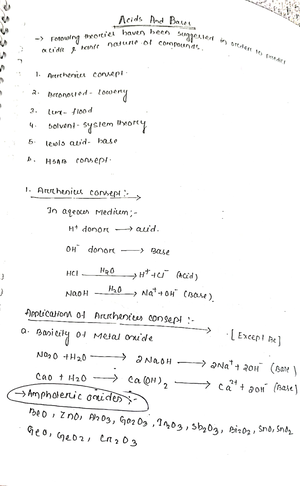 Acids And Bases
→ Following theories haven been suggested in order to predict
acidic & basic nature of compounds.
1. Arrhenius concept.
2. Bronosted-lowery
3. Lux-flood
4. Solvent-system theory
5. Lewis acid-base
6. HSAB concept.
1. Arrhenius concept:-
In aqeous Medium;-
H⁺ donor → acid.
OH⁻ donor → Base
HCl —H₂O→ H⁺ + Cl⁻ (Acid)
NaOH —H₂O→ Na⁺ + OH⁻ (Base).
Applications of Arrhenius concept:-
a. Basicity of Metal oxide [Except Be]
Na₂O + H₂O → 2NaOH → 2Na⁺ + 2OH⁻ (Base)
CaO + H₂O → Ca(OH)₂ → Ca²⁺ + 2OH⁻ (Base)
→ Amphoteric oxides:-
BeO, ZnO, Al₂O₃, Ga₂O₃, In₂O₃, Sb₂O₃, Bi₂O₃, SnO, SnO₂
GeO, GeO₂, Cr₂O₃